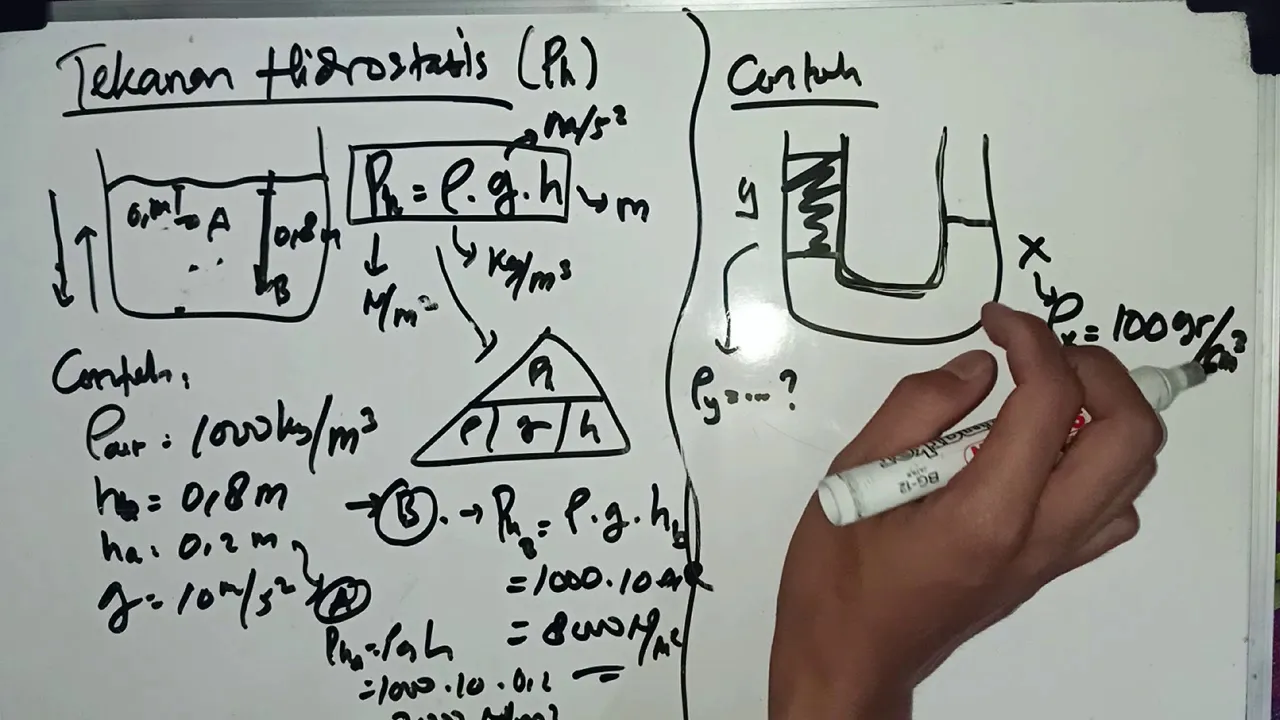 Tekanan Hidrostatis (Ph)
0,2m
A
0,8m
B
Ph = ρ.g.h
m/s²
m
kg/m³
N/m²
Ph
ρ g h
Contoh:
ρair = 1000kg/m³
hb = 0,8m
ha = 0,2m
g = 10 m/s²
B → PhB = ρ.g.hb
= 1000.10
= 8000 N/m²
A
PhA = ρgh
= 1000.10.0,2
Contoh
y
ρy = ...?
x
ρx = 100gr/cm³
BG-12